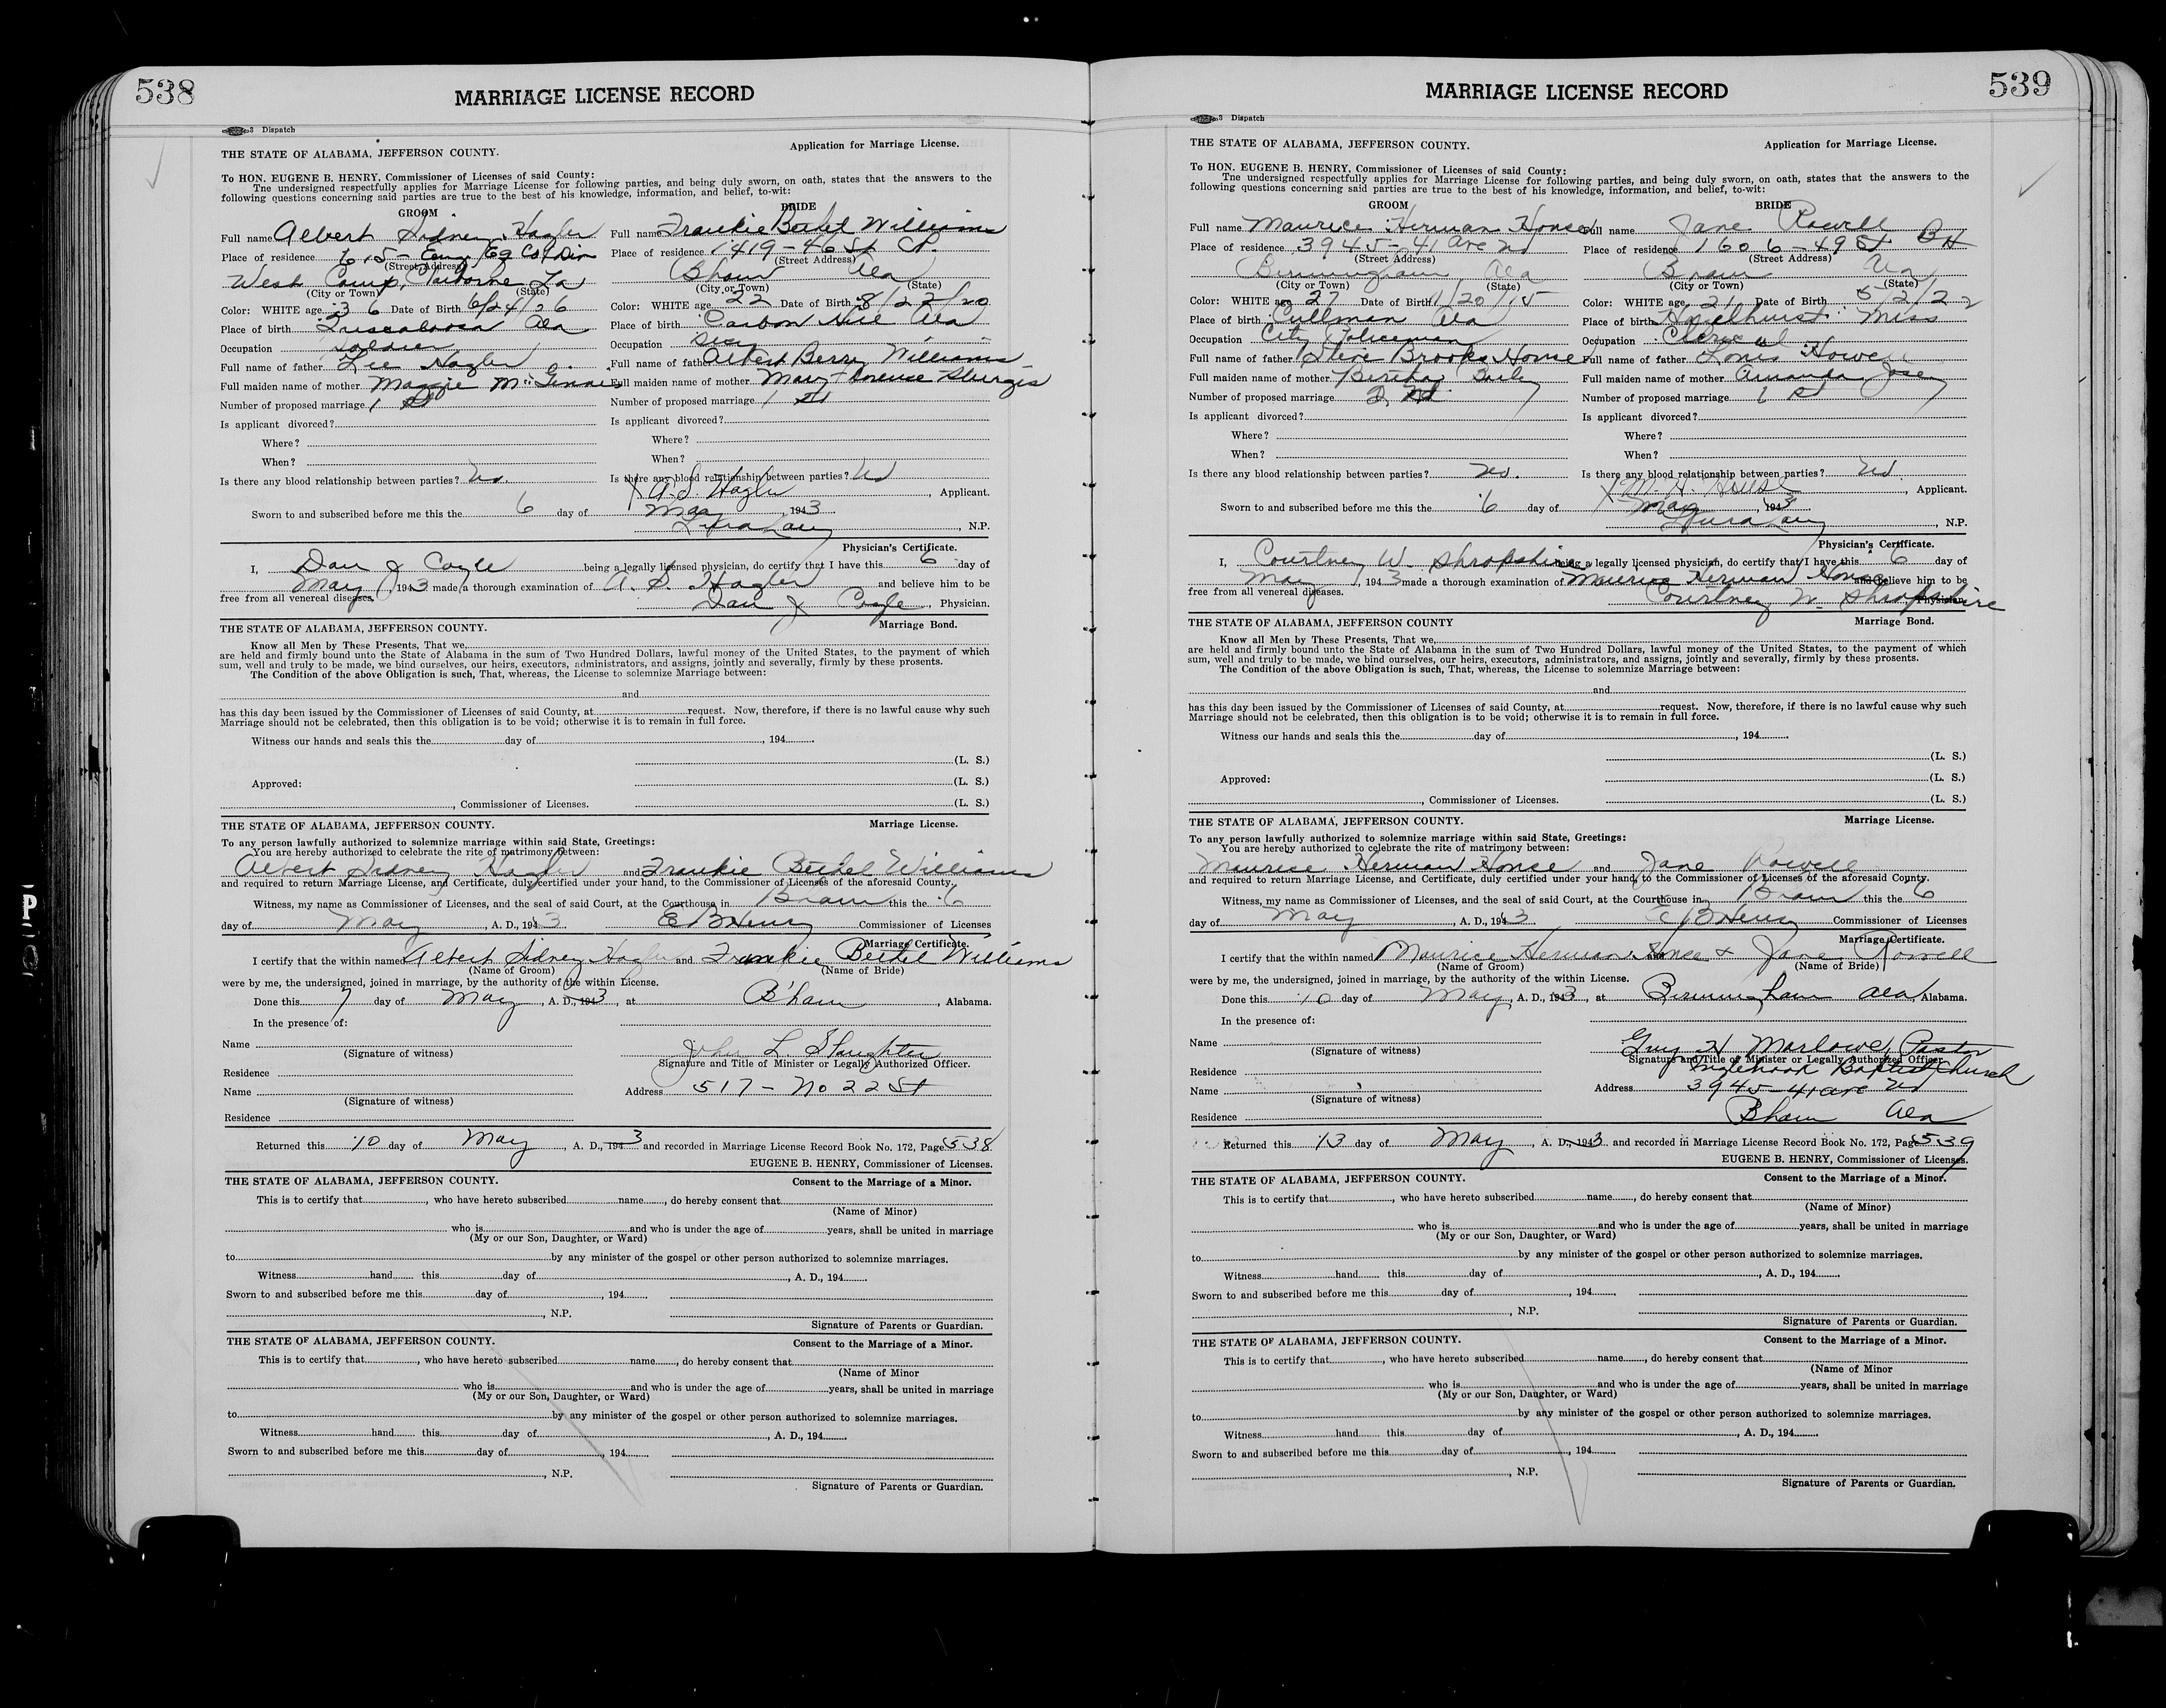 538
MARRIAGE LICENSE RECORD
3 Dispatch
THE STATE OF ALABAMA, JEFFERSON COUNTY. Application for Marriage License.
To HON. EUGENE B. HENRY, Commissioner of Licenses of said County:
The undersigned respectfully applies for Marriage License for following parties, and being duly sworn, on oath, states that the answers to the
following questions concerning said parties are true to the best of his knowledge, information, and belief, to-wit:
GROOM BRIDE
Full name Albert Sidney Hagler Full name Frankie Bethel Williams
Place of residence 615 - Eq Co Place of residence 1419 - 46 St CP
(Street Address) (Street Address)
West Camp, Claiborne, La Bham Ala
(City or Town) (State) (City or Town) (State)
Color: WHITE age 36 Date of Birth 6/24/26 Color: WHITE age 22 Date of Birth 8/22/20
Place of birth Tuscaloosa Ala Place of birth Carbon Hill Ala
Occupation Soldier Occupation Secy
Full name of father Lee Hagler Full name of father Albert Berry Williams
Full maiden name of mother Maggie Full maiden name of mother Mary Florence Sturgis
Number of proposed marriage 1 st Number of proposed marriage 1 st
Is applicant divorced? Is applicant divorced?
Where? Where?
When? When?
Is there any blood relationship between parties? No. Is there any blood relationship between parties? No
X A. S. Hagler, Applicant.
Sworn to and subscribed before me this the 6 day of May, 1943
, N.P.
Physician's Certificate.
I, Dan J Coyle being a legally licensed physician, do certify that I have this 6 day of
May, 1943 made a thorough examination of A. S. Hagler and believe him to be
free from all venereal diseases. Dan J Coyle, Physician.
THE STATE OF ALABAMA, JEFFERSON COUNTY. Marriage Bond.
Know all Men by These Presents, That we,
are held and firmly bound unto the State of Alabama in the sum of Two Hundred Dollars, lawful money of the United States, to the payment of which
sum, well and truly to be made, we bind ourselves, our heirs, executors, administrators, and assigns, jointly and severally, firmly by these presents.
The Condition of the above Obligation is such, That, whereas, the License to solemnize Marriage between:
and
has this day been issued by the Commissioner of Licenses of said County, at request. Now, therefore, if there is no lawful cause why such
Marriage should not be celebrated, then this obligation is to be void; otherwise it is to remain in full force.
Witness our hands and seals this the day of , 194
(L. S.)
Approved: (L. S.)
, Commissioner of Licenses. (L. S.)
THE STATE OF ALABAMA, JEFFERSON COUNTY. Marriage License.
To any person lawfully authorized to solemnize marriage within said State, Greetings:
You are hereby authorized to celebrate the rite of matrimony between:
Albert Sidney Hagler and Frankie Bethel Williams
and required to return Marriage License, and Certificate, duly certified under your hand, to the Commissioner of Licenses of the aforesaid County.
Witness, my name as Commissioner of Licenses, and the seal of said Court, at the Courthouse in Bham this the 6
day of May, A. D., 1943 E B Henry Commissioner of Licenses
Marriage Certificate.
I certify that the within named Albert Sidney Hagler and Frankie Bethel Williams
(Name of Groom) (Name of Bride)
were by me, the undersigned, joined in marriage, by the authority of the within License.
Done this 7 day of May, A. D., 1943, at B'ham, Alabama.
In the presence of:
Name John L. Slaughter
(Signature of witness) Signature and Title of Minister or Legally Authorized Officer.
Residence
Name Address 517 - No 22 St
(Signature of witness)
Residence
Returned this 10 day of May, A. D., 1943 and recorded in Marriage License Record Book No. 172, Page 538
EUGENE B. HENRY, Commissioner of Licenses.
THE STATE OF ALABAMA, JEFFERSON COUNTY. Consent to the Marriage of a Minor.
This is to certify that , who have hereto subscribed name , do hereby consent that
(Name of Minor)
who is and who is under the age of years, shall be united in marriage
(My or our Son, Daughter, or Ward)
to by any minister of the gospel or other person authorized to solemnize marriages.
Witness hand this day of , A. D., 194
Sworn to and subscribed before me this day of , 194
, N.P.
Signature of Parents or Guardian.
THE STATE OF ALABAMA, JEFFERSON COUNTY. Consent to the Marriage of a Minor.
This is to certify that , who have hereto subscribed name , do hereby consent that
(Name of Minor
who is and who is under the age of years, shall be united in marriage
(My or our Son, Daughter, or Ward)
to by any minister of the gospel or other person authorized to solemnize marriages.
Witness hand this day of , A. D., 194
Sworn to and subscribed before me this day of , 194
, N.P.
Signature of Parents or Guardian.
539
MARRIAGE LICENSE RECORD
3 Dispatch
THE STATE OF ALABAMA, JEFFERSON COUNTY. Application for Marriage License.
To HON. EUGENE B. HENRY, Commissioner of Licenses of said County:
The undersigned respectfully applies for Marriage License for following parties, and being duly sworn, on oath, states that the answers to the
following questions concerning said parties are true to the best of his knowledge, information, and belief, to-wit:
GROOM BRIDE
Full name Maurice Herman House Full name Jane Rowell
Place of residence 3945 - 41 Ave No Place of residence 1606 - 49 St
(Street Address) (Street Address)
Birmingham Ala Bham Ala
(City or Town) (State) (City or Town) (State)
Color: WHITE age 27 Date of Birth 11/20/15 Color: WHITE age 21 Date of Birth 5/2/22
Place of birth Cullman Ala Place of birth Hazelhurst Miss
Occupation City Policeman Occupation Clerical
Full name of father Steve Brooks House Full name of father Louis
Full maiden name of mother Bertha Full maiden name of mother Amanda
Number of proposed marriage 2 nd Number of proposed marriage 1 st
Is applicant divorced? Is applicant divorced?
Where? Where?
When? When?
Is there any blood relationship between parties? No. Is there any blood relationship between parties? No
X M H House, Applicant.
Sworn to and subscribed before me this the 6 day of May, 1943
, N.P.
Physician's Certificate.
I, Courtney W. Shropshire being a legally licensed physician, do certify that I have this 6 day of
May, 1943 made a thorough examination of Maurice Herman House and believe him to be
free from all venereal diseases. Courtney W. Shropshire Physician.
THE STATE OF ALABAMA, JEFFERSON COUNTY Marriage Bond.
Know all Men by These Presents, That we,
are held and firmly bound unto the State of Alabama in the sum of Two Hundred Dollars, lawful money of the United States, to the payment of which
sum, well and truly to be made, we bind ourselves, our heirs, executors, administrators, and assigns, jointly and severally, firmly by these presents.
The Condition of the above Obligation is such, That, whereas, the License to solemnize Marriage between:
and
has this day been issued by the Commissioner of Licenses of said County, at request. Now, therefore, if there is no lawful cause why such
Marriage should not be celebrated, then this obligation is to be void; otherwise it is to remain in full force.
Witness our hands and seals this the day of , 194
(L. S.)
Approved: (L. S.)
, Commissioner of Licenses. (L. S.)
THE STATE OF ALABAMA, JEFFERSON COUNTY. Marriage License.
To any person lawfully authorized to solemnize marriage within said State, Greetings:
You are hereby authorized to celebrate the rite of matrimony between:
Maurice Herman House and Jane Rowell
and required to return Marriage License, and Certificate, duly certified under your hand, to the Commissioner of Licenses of the aforesaid County.
Witness, my name as Commissioner of Licenses, and the seal of said Court, at the Courthouse in Bham this the 6
day of May, A. D., 1943 E B Henry Commissioner of Licenses
Marriage Certificate.
I certify that the within named Maurice Herman House & Jane Rowell
(Name of Groom) (Name of Bride)
were by me, the undersigned, joined in marriage, by the authority of the within License.
Done this 10 day of May, A. D., 1943, at Birmingham Ala Alabama.
In the presence of:
Name Guy H Marlowe, Pastor
(Signature of witness) Signature and Title of Minister or Legally Authorized Officer
Residence Inglenook Baptist Church
Name Address 3945 - 41 Ave No
(Signature of witness)
Residence Bham Ala
Returned this 13 day of May, A. D., 1943 and recorded in Marriage License Record Book No. 172, Page 539
EUGENE B. HENRY, Commissioner of Licenses.
THE STATE OF ALABAMA, JEFFERSON COUNTY. Consent to the Marriage of a Minor.
This is to certify that , who have hereto subscribed name , do hereby consent that
(Name of Minor)
who is and who is under the age of years, shall be united in marriage
(My or our Son, Daughter, or Ward)
to by any minister of the gospel or other person authorized to solemnize marriages.
Witness hand this day of , A. D., 194
Sworn to and subscribed before me this day of , 194
, N.P.
Signature of Parents or Guardian.
THE STATE OF ALABAMA, JEFFERSON COUNTY. Consent to the Marriage of a Minor.
This is to certify that , who have hereto subscribed name , do hereby consent that
(Name of Minor
who is and who is under the age of years, shall be united in marriage
(My or our Son, Daughter, or Ward)
to by any minister of the gospel or other person authorized to solemnize marriages.
Witness hand this day of , A. D., 194
Sworn to and subscribed before me this day of , 194
, N.P.
Signature of Parents or Guardian.